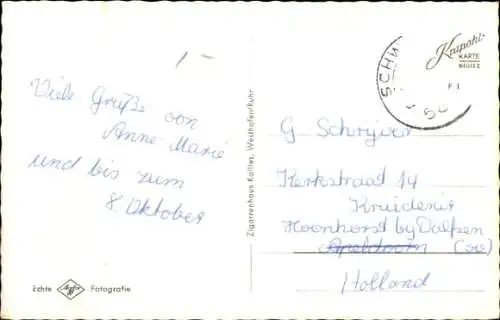 Viele Grüße von
Anne-Marie
und bis zum
8. Oktober
Echte Agfa Fotografie
Zigarrenhaus Kailies, Westhofen/Ruhr
SCHW
Krüpohl-
KARTE
NEUSS
F 1
G Schrijver
Kerkstraat 14
Kruidenier
Hoonhorst by Dalfsen
Apeldoorn (Ov)
Holland